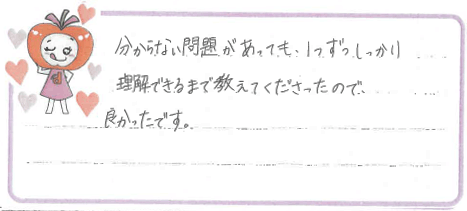 分からない問題があっても、1つずつしっかり
理解できるまで教えてくださったので、
良かったです。